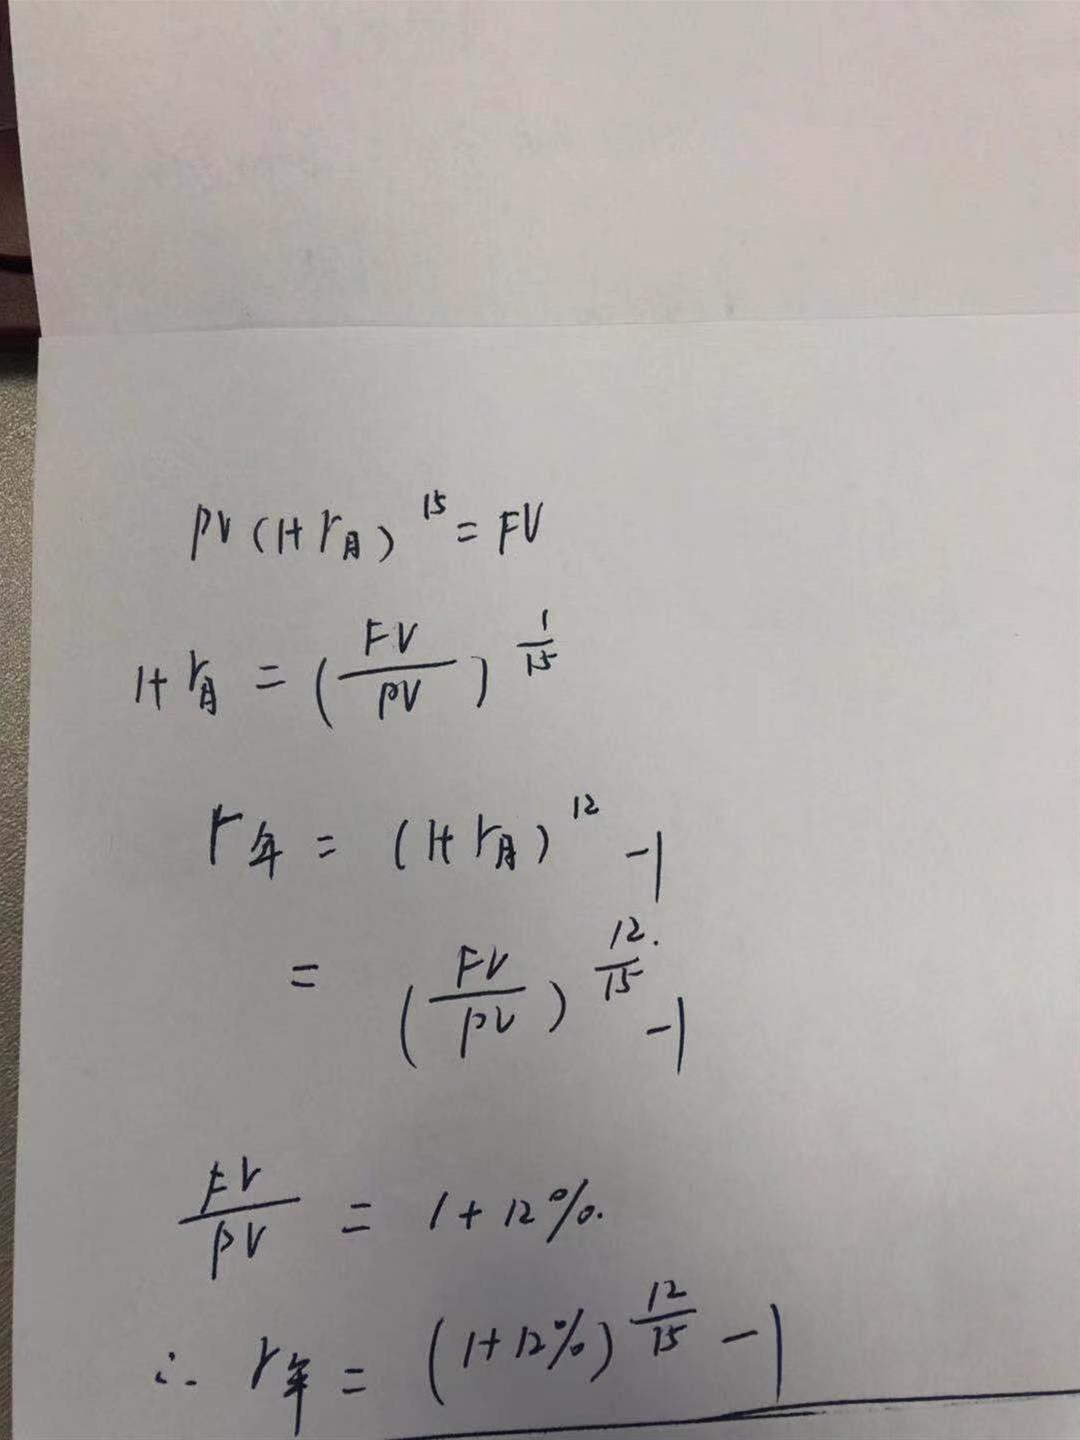 PV(1+r月)^15 = FV
1+r月 = (FV/PV)^(1/15)
r年 = (1+r月)^12 -1
= (FV/PV)^(12/15) -1
FV/PV = 1+12%.
∴ r年 = (1+12%)^(12/15) -1